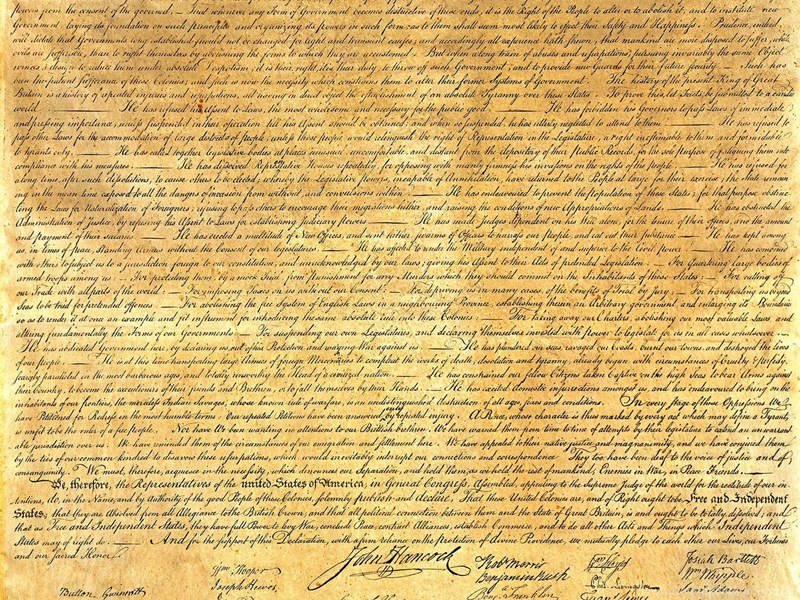 powers from the consent of the governed, — That whenever any Form of Government becomes destructive of these ends, it is the Right of the People to alter or to abolish it, and to institute new
Government, laying its foundation on such principles and organizing its powers in such form, as to them shall seem most likely to effect their Safety and Happiness. Prudence, indeed,
will dictate that Governments long established should not be changed for light and transient causes; and accordingly all experience hath shewn, that mankind are more disposed to suffer, while
evils are sufferable, than to right themselves by abolishing the forms to which they are accustomed. But when a long train of abuses and usurpations, pursuing invariably the same Object
evinces a design to reduce them under absolute Despotism, it is their right, it is their duty, to throw off such Government, and to provide new Guards for their future security. — Such has
been the patient sufferance of these Colonies; and such is now the necessity which constrains them to alter their former Systems of Government. The history of the present King of Great
Britain is a history of repeated injuries and usurpations, all having in direct object the establishment of an absolute Tyranny over these States. To prove this, let Facts be submitted to a candid
world. — He has refused his Assent to Laws, the most wholesome and necessary for the public good. — He has forbidden his Governors to pass Laws of immediate
and pressing importance, unless suspended in their operation till his Assent should be obtained; and when so suspended, he has utterly neglected to attend to them. — He has refused to
pass other Laws for the accommodation of large districts of people, unless those people would relinquish the right of Representation in the Legislature, a right inestimable to them and formidable
to tyrants only. — He has called together legislative bodies at places unusual, uncomfortable, and distant from the depository of their public Records, for the sole purpose of fatiguing them into
compliance with his measures. — He has dissolved Representative Houses repeatedly, for opposing with manly firmness his invasions on the rights of the people. — He has refused for
a long time, after such dissolutions, to cause others to be elected; whereby the Legislative powers, incapable of Annihilation, have returned to the People at large for their exercise; the State remain
ing in the mean time exposed to all the dangers of invasion from without, and convulsions within. — He has endeavoured to prevent the Population of these States; for that purpose obstruc
ting the Laws for Naturalization of Foreigners; refusing to pass others to encourage their migrations hither, and raising the conditions of new Appropriations of Lands. — He has obstructed the
Administration of Justice, by refusing his Assent to Laws for establishing Judiciary powers. — He has made Judges dependent on his Will alone, for the tenure of their offices, and the amount
and payment of their salaries. — He has erected a multitude of New Offices, and sent hither swarms of Officers to harrass our people, and eat out their substance. — He has kept among
us, in times of peace, Standing Armies without the Consent of our legislatures. — He has affected to render the Military independent of and superior to the Civil power. — He has combined
with others to subject us to a jurisdiction foreign to our constitution, and unacknowledged by our laws; giving his Assent to their Acts of pretended Legislation: — For Quartering large bodies of
armed troops among us: — For protecting them, by a mock Trial, from punishment for any Murders which they should commit on the Inhabitants of these States: — For cutting off
our Trade with all parts of the world: — For imposing Taxes on us without our Consent: — For depriving us in many cases, of the benefits of Trial by Jury: — For transporting us beyond
Seas to be tried for pretended offences — For abolishing the free System of English Laws in a neighbouring Province, establishing therein an Arbitrary government, and enlarging its Boundaries
so as to render it at once an example and fit instrument for introducing the same absolute rule into these Colonies: — For taking away our Charters, abolishing our most valuable Laws, and
altering fundamentally the Forms of our Governments: — For suspending our own Legislatures, and declaring themselves invested with power to legislate for us in all cases whatsoever. —
He has abdicated Government here, by declaring us out of his Protection and waging War against us. — He has plundered our seas, ravaged our Coasts, burnt our towns, and destroyed the lives
of our people. — He is at this time transporting large Armies of foreign Mercenaries to compleat the works of death, desolation and tyranny, already begun with circumstances of Cruelty & perfidy
scarcely paralleled in the most barbarous ages, and totally unworthy the Head of a civilized nation. — He has constrained our fellow Citizens taken Captive on the high Seas to bear Arms against
their Country, to become the executioners of their friends and Brethren, or to fall themselves by their Hands. — He has excited domestic insurrections amongst us, and has endeavoured to bring on the
inhabitants of our frontiers, the merciless Indian Savages, whose known rule of warfare, is an undistinguished destruction of all ages, sexes and conditions. In every stage of these Oppressions We
have Petitioned for Redress in the most humble terms: Our repeated Petitions have been answered only by repeated injury. A Prince, whose character is thus marked by every act which may define a Tyrant,
is unfit to be the ruler of a free people. Nor have We been wanting in attentions to our Brittish brethren. We have warned them from time to time of attempts by their legislature to extend an unwarrant
able jurisdiction over us. We have reminded them of the circumstances of our emigration and settlement here. We have appealed to their native justice and magnanimity, and we have conjured them
by the ties of our common kindred to disavow these usurpations, which, would inevitably interrupt our connections and correspondence. They too have been deaf to the voice of justice and of
consanguinity. We must, therefore, acquiesce in the necessity, which denounces our Separation, and hold them, as we hold the rest of mankind, Enemies in War, in Peace Friends. —
We, therefore, the Representatives of the united States of America, in General Congress, Assembled, appealing to the Supreme Judge of the world for the rectitude of our in
tentions, do, in the Name, and by Authority of the good People of these Colonies, solemnly publish and declare, That these United Colonies are, and of Right ought to be Free and Independent
States; that they are Absolved from all Allegiance to the British Crown, and that all political connection between them and the State of Great Britain, is and ought to be totally dissolved; and
that as Free and Independent States, they have full Power to levy War, conclude Peace, contract Alliances, establish Commerce, and to do all other Acts and Things which Independent
States may of right do. — And for the support of this Declaration, with a firm reliance on the protection of divine Providence, we mutually pledge to each other our Lives, our Fortunes
and our sacred Honor.
John Hancock
Button Gwinnett
Wm Hooper
Joseph Hewes,
Robt Morris
Benjamin Rush
Benj. Franklin
Wm Floyd
Phil. Livingston
Josiah Bartlett
Wm Whipple
Saml Adams